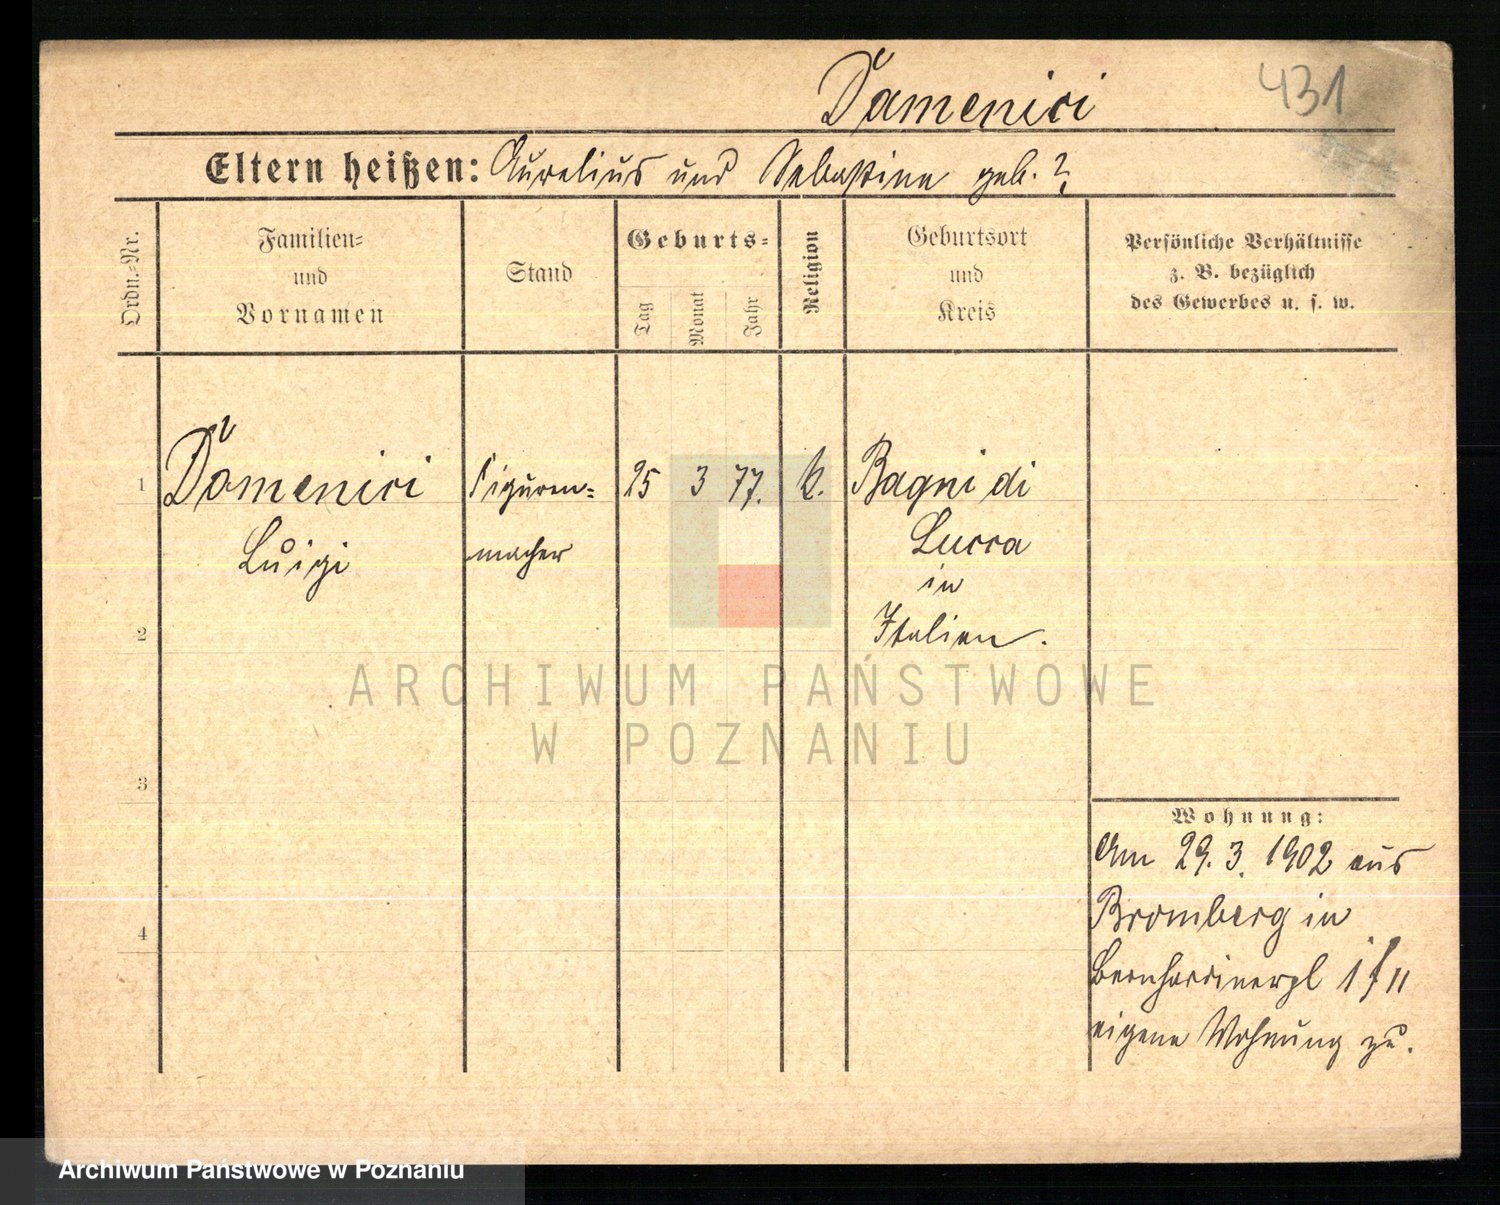 Domenici
431
Eltern heißen: Aurelius und Sebastine geb. ?
Ordn.=Nr.
Familien=
und
Vornamen
Stand
Geburts=
Tag
Monat
Jahr
Religion
Geburtsort
und
Kreis
Persönliche Verhältnisse
z. B. bezüglich
des Gewerbes u. s. w.
1 Domenici Figuren= 25 3 77. K. Bagni di
Luigi macher Lucca
in
2 Italien.
ARCHIWUM PAŃSTWOWE
W POZNANIU
3
Wohnung:
Am 29. 3. 1902 aus
Bromberg in
4
Bernhardinerpl 1 f II
eigene Wohnung zu.
Archiwum Państwowe w Poznaniu